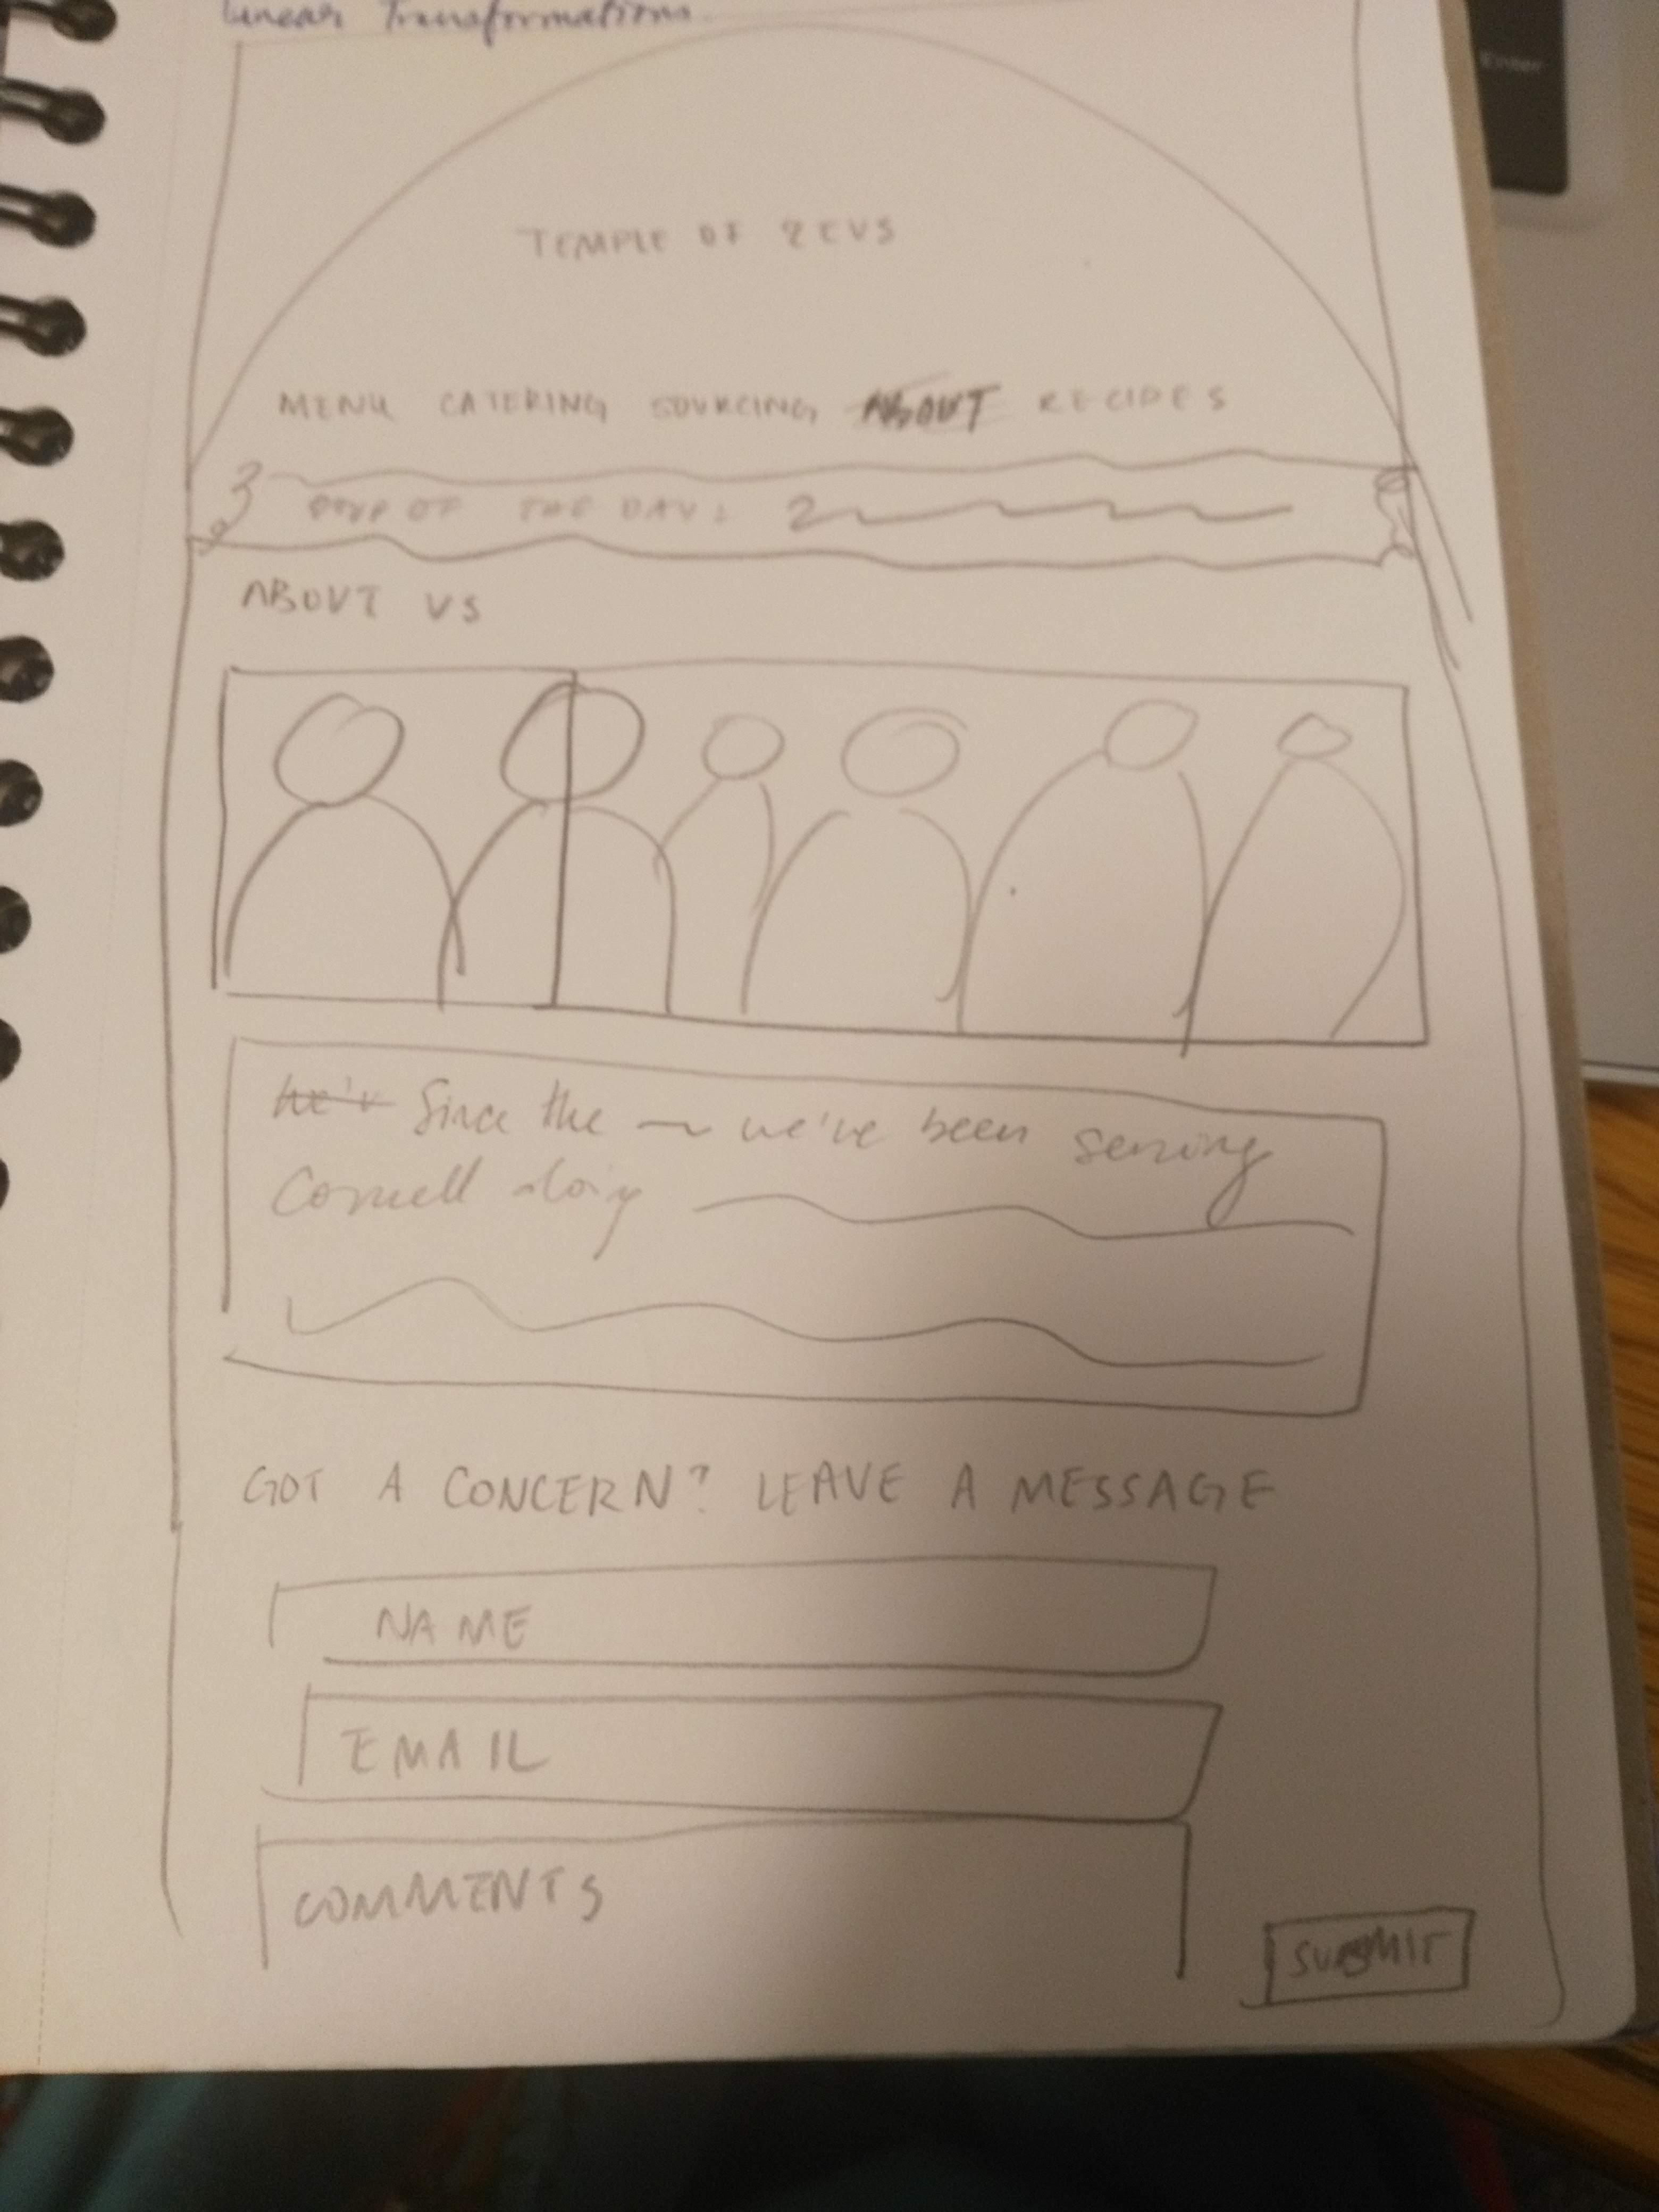 Linear Transformations
TEMPLE OF ZEVS
MENU CATERING SOURCING ABOUT RECIPES
SOUP OF THE DAY:
ABOVT VS
we'v Since the we've been serving
Cornell
GOT A CONCERN? LEAVE A MESSAGE
NAME
EMAIL
COMMENTS
SUBMIT
Enter